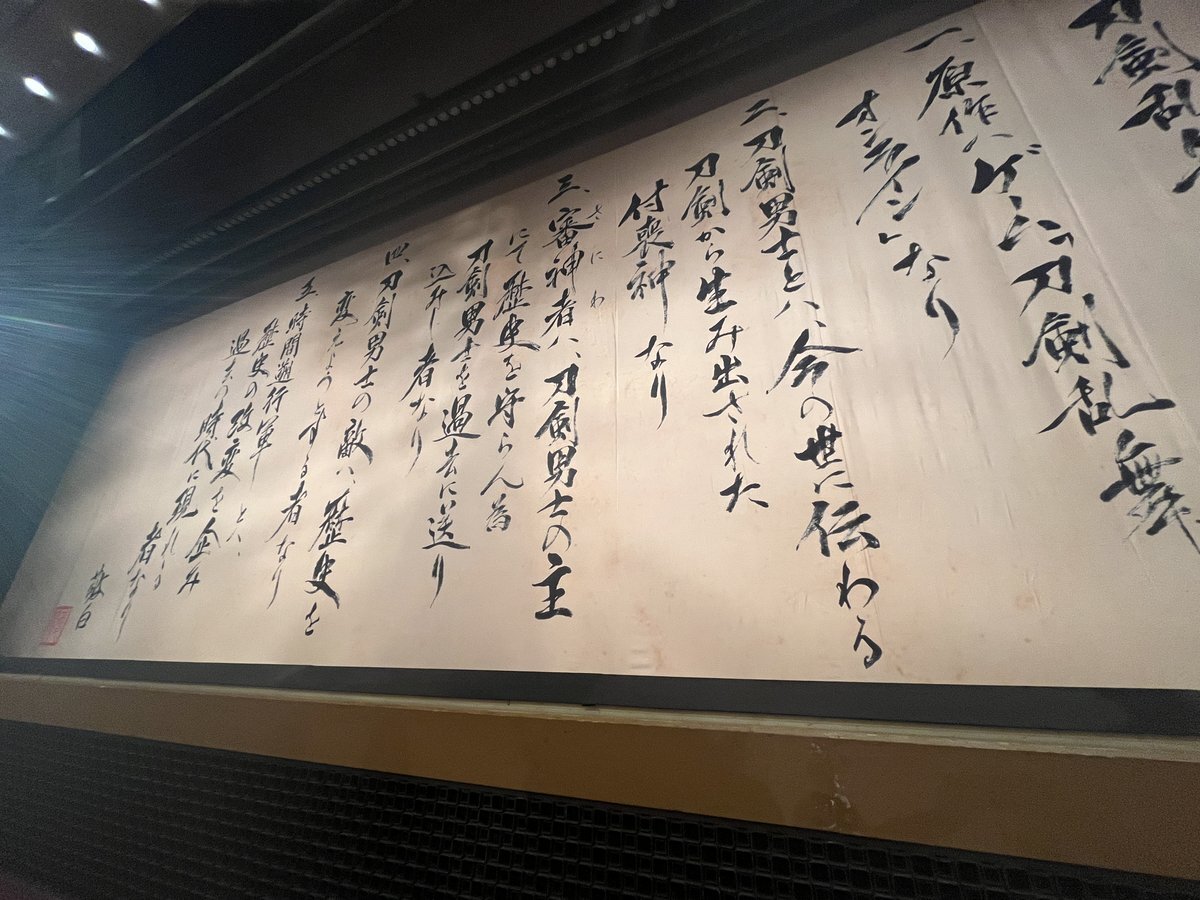 刀剣乱
一、原作ハゲーム「刀剣乱舞
オンライン」なり
二、刀剣男士とハ、今の世に伝わる
刀剣から生み出された
付喪神なり
三、審神者ハ、刀剣男士の主
さにわ
にて歴史を守らん為
刀剣男士を過去に送り
込みし者なり
四、刀剣男士の敵ハ、歴史を
変えようとする者なり
五、時間遡行軍とハ、
歴史の改変を企み
過去の時代に現れる
者なり
敬白